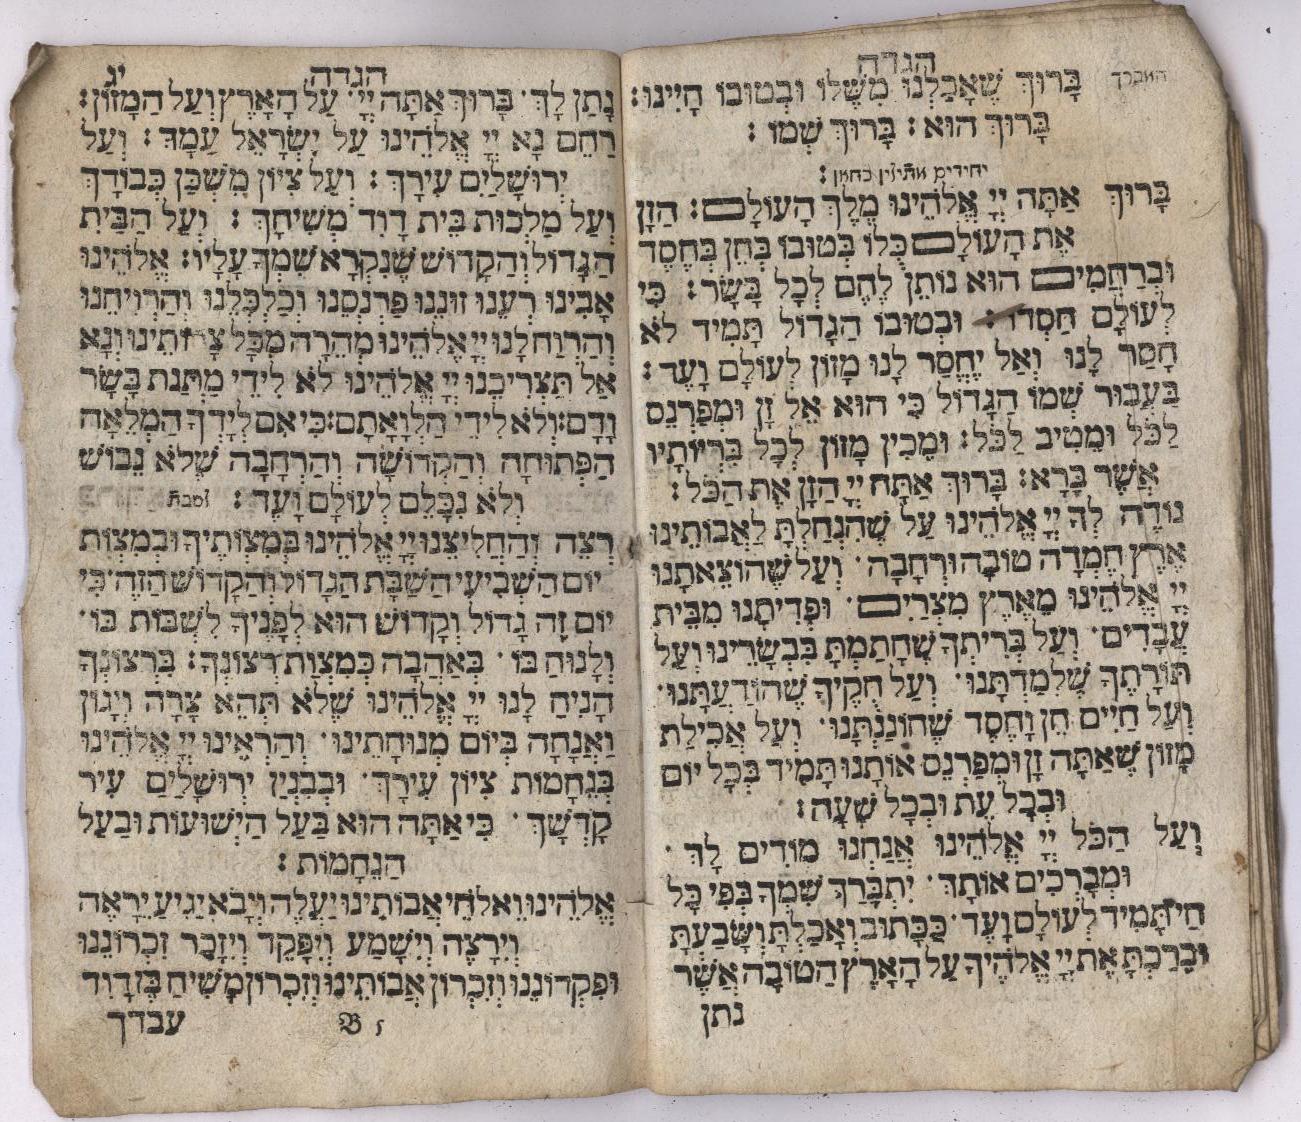 הגדה
המברך
בָּרוּךְ שֶׁאָכַלְנוּ מִשֶּׁלוֹ וּבְטוּבוֹ חָיִינוּ:
בָּרוּךְ הוּא: בָּרוּךְ שְׁמוֹ:
יחידים מתחילין כאן:
בָּרוּךְ אַתָּה יְיָ אֱלֹהֵינוּ מֶלֶךְ הָעוֹלָם: הַזָּן
אֶת הָעוֹלָם כֻּלּוֹ בְּטוּבוֹ בְּחֵן בְּחֶסֶד
וּבְרַחֲמִים הוּא נוֹתֵן לֶחֶם לְכָל בָּשָׂר: כִּי
לְעוֹלָם חַסְדּוֹ: וּבְטוּבוֹ הַגָּדוֹל תָּמִיד לֹא
חָסַר לָנוּ וְאַל יֶחֱסַר לָנוּ מָזוֹן לְעוֹלָם וָעֶד:
בַּעֲבוּר שְׁמוֹ הַגָּדוֹל כִּי הוּא אֵל זָן וּמְפַרְנֵס
לַכֹּל וּמֵטִיב לַכֹּל: וּמֵכִין מָזוֹן לְכָל בְּרִיּוֹתָיו
אֲשֶׁר בָּרָא: בָּרוּךְ אַתָּה יְיָ הַזָּן אֶת הַכֹּל:
נוֹדֶה לְּךָ יְיָ אֱלֹהֵינוּ עַל שֶׁהִנְחַלְתָּ לַאֲבוֹתֵינוּ
אֶרֶץ חֶמְדָּה טוֹבָה וּרְחָבָה· וְעַל שֶׁהוֹצֵאתָנוּ
יְיָ אֱלֹהֵינוּ מֵאֶרֶץ מִצְרַיִם· וּפְדִיתָנוּ מִבֵּית
עֲבָדִים· וְעַל בְּרִיתְךָ שֶׁחָתַמְתָּ בִּבְשָׂרֵינוּ וְעַל
תּוֹרָתְךָ שֶׁלִּמַּדְתָּנוּ· וְעַל חֻקֶּיךָ שֶׁהוֹדַעְתָּנוּ·
וְעַל חַיִּים חֵן וָחֶסֶד שֶׁחוֹנַנְתָּנוּ· וְעַל אֲכִילַת
מָזוֹן שֶׁאַתָּה זָן וּמְפַרְנֵס אוֹתָנוּ תָּמִיד בְּכָל יוֹם
וּבְכָל עֵת וּבְכָל שָׁעָה:
וְעַל הַכֹּל יְיָ אֱלֹהֵינוּ אֲנַחְנוּ מוֹדִים לָךְ·
וּמְבָרְכִים אוֹתָךְ· יִתְבָּרַךְ שִׁמְךָ בְּפִי כָּל
חַי תָּמִיד לְעוֹלָם וָעֶד· כַּכָּתוּב וְאָכַלְתָּ וְשָׂבַעְתָּ
וּבֵרַכְתָּ אֶת יְיָ אֱלֹהֶיךָ עַל הָאָרֶץ הַטּוֹבָה אֲשֶׁר
נתן
הגדה יג
נָתַן לָךְ· בָּרוּךְ אַתָּה יְיָ· עַל הָאָרֶץ וְעַל הַמָּזוֹן:
רַחֵם נָא יְיָ אֱלֹהֵינוּ עַל יִשְׂרָאֵל עַמָּךְ: וְעַל
יְרוּשָׁלַיִם עִירָךְ: וְעַל צִיּוֹן מִשְׁכַּן כְּבוֹדָךְ
וְעַל מַלְכוּת בֵּית דָּוִד מְשִׁיחָךְ: וְעַל הַבַּיִת
הַגָּדוֹל וְהַקָּדוֹשׁ שֶׁנִּקְרָא שִׁמְךָ עָלָיו: אֱלֹהֵינוּ
אָבִינוּ רְעֵנוּ זוּנֵנוּ פַּרְנְסֵנוּ וְכַלְכְּלֵנוּ וְהַרְוִיחֵנוּ
וְהַרְוַח לָנוּ יְיָ אֱלֹהֵינוּ מְהֵרָה מִכָּל צָרוֹתֵינוּ וְנָא
אַל תַּצְרִיכֵנוּ יְיָ אֱלֹהֵינוּ לֹא לִידֵי מַתְּנַת בָּשָׂר
וָדָם: וְלֹא לִידֵי הַלְוָאָתָם: כִּי אִם לְיָדְךָ הַמְּלֵאָה
הַפְּתוּחָה וְהַקְּדוֹשָׁה וְהָרְחָבָה שֶׁלֹּא נֵבוֹשׁ
וְלֹא נִכָּלֵם לְעוֹלָם וָעֶד: לשבת
רְצֵה וְהַחֲלִיצֵנוּ יְיָ אֱלֹהֵינוּ בְּמִצְוֹתֶיךָ וּבְמִצְוֹת
יוֹם הַשְּׁבִיעִי הַשַּׁבָּת הַגָּדוֹל וְהַקָּדוֹשׁ הַזֶּה· כִּי
יוֹם זֶה גָּדוֹל וְקָדוֹשׁ הוּא לְפָנֶיךָ לִשְׁבּוֹת בּוֹ·
וְלָנוּחַ בּוֹ· בְּאַהֲבָה כְּמִצְוַת רְצוֹנֶךָ: בִּרְצוֹנְךָ
הָנִיחַ לָנוּ יְיָ אֱלֹהֵינוּ שֶׁלֹּא תְּהֵא צָרָה וְיָגוֹן
וַאֲנָחָה בְּיוֹם מְנוּחָתֵינוּ· וְהַרְאֵינוּ יְיָ אֱלֹהֵינוּ
בְּנֶחָמוֹת צִיּוֹן עִירָךְ· וּבְבִנְיַן יְרוּשָׁלַיִם עִיר
קָדְשָׁךְ· כִּי אַתָּה הוּא בַּעַל הַיְשׁוּעוֹת וּבַעַל
הַנֶּחָמוֹת:
אֱלֹהֵינוּ וֵאלֹהֵי אֲבוֹתֵינוּ יַעֲלֶה וְיָבֹא יַגִּיעַ יֵרָאֶה
וְיֵרָצֶה וְיִשָּׁמַע וְיִפָּקֵד וְיִזָּכֵר זִכְרוֹנֵנוּ
וּפִקְדוֹנֵנוּ וְזִכְרוֹן אֲבוֹתֵינוּ וְזִכְרוֹן מָשִׁיחַ בֶּן דָּוִד
עבדך